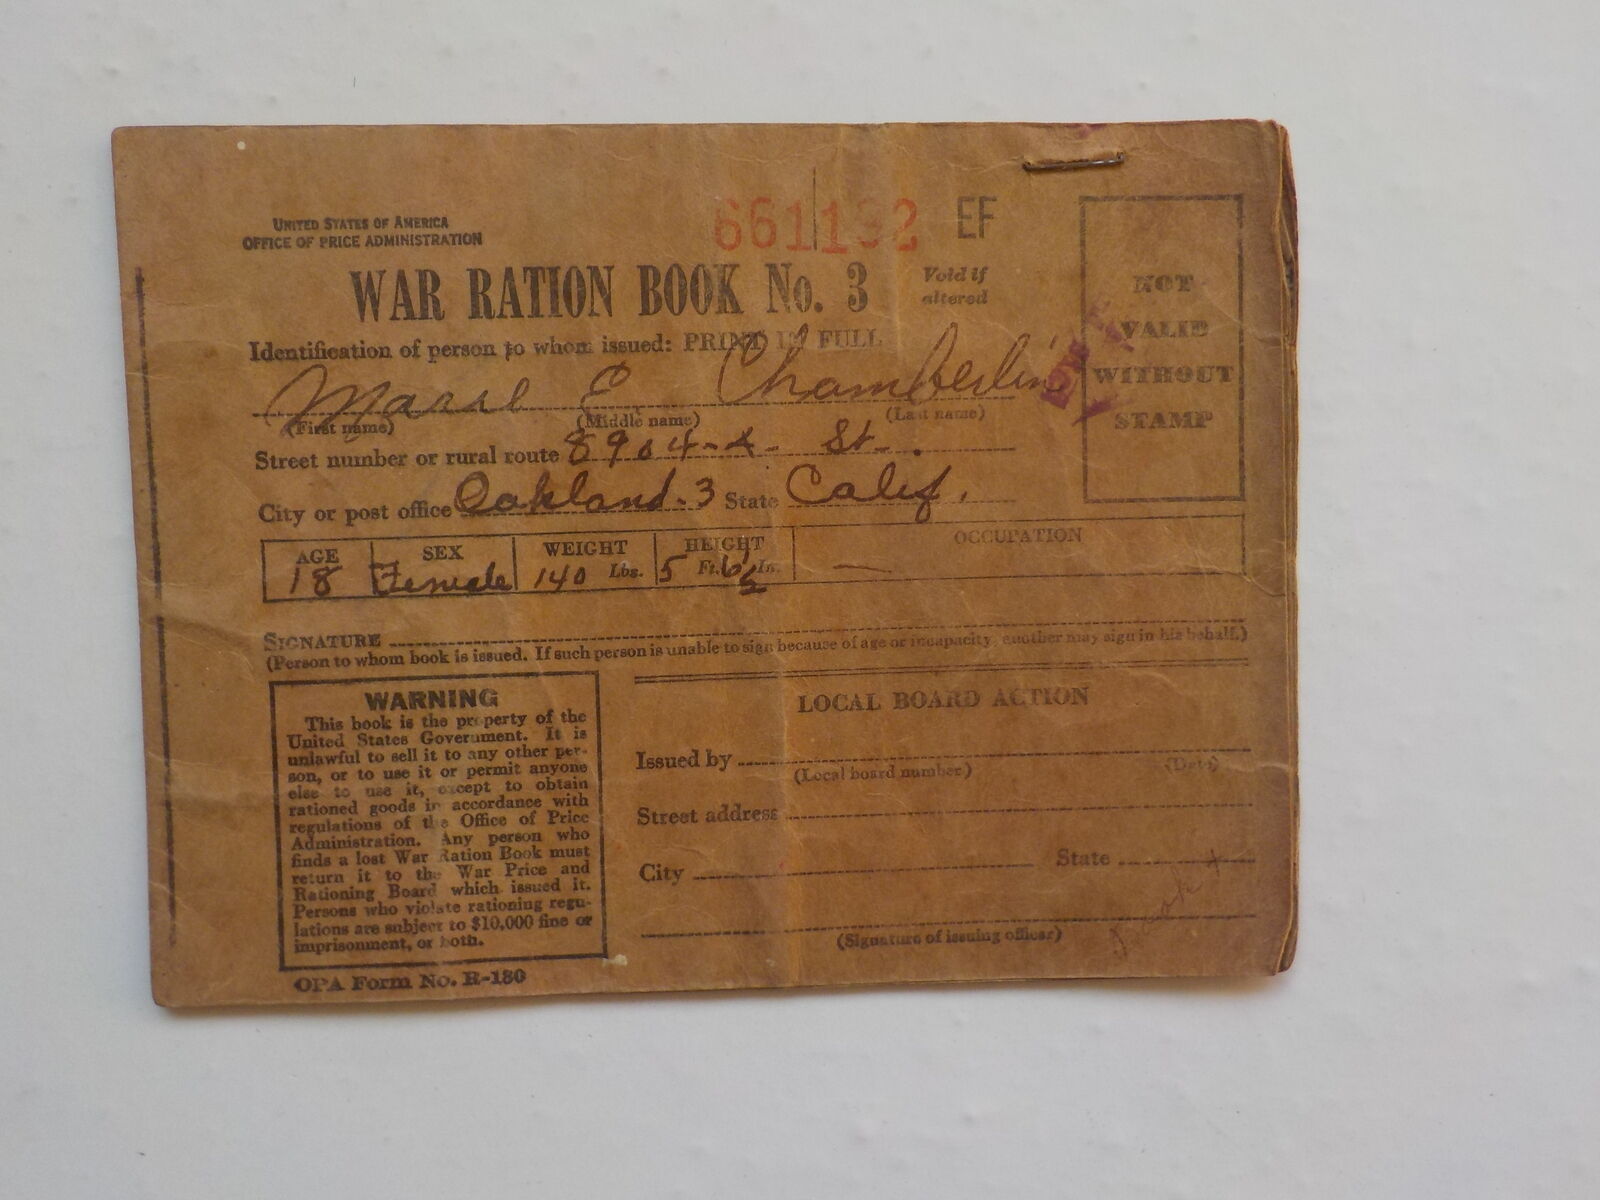 UNITED STATES OF AMERICA
OFFICE OF PRICE ADMINISTRATION
661192 EF
WAR RATION BOOK No. 3 Void if altered
Identification of person to whom issued: PRINT IN FULL
E Chamberlin
(First name) (Middle name) (Last name)
Street number or rural route 8904 - St.
City or post office Oakland-3 State Calif.
NOT
VALID
WITHOUT
STAMP
AGE SEX WEIGHT HEIGHT OCCUPATION
18 Female 140 Lbs. 5 Ft. 6½ In. —
SIGNATURE
(Person to whom book is issued. If such person is unable to sign because of age or incapacity, another may sign in his behalf.)
WARNING
This book is the property of the
United States Government. It is
unlawful to sell it to any other per-
son, or to use it or permit anyone
else to use it, except to obtain
rationed goods in accordance with
regulations of the Office of Price
Administration. Any person who
finds a lost War Ration Book must
return it to the War Price and
Rationing Board which issued it.
Persons who violate rationing regu-
lations are subject to $10,000 fine or
imprisonment, or both.
OPA Form No. R-130
LOCAL BOARD ACTION
Issued by
(Local board number) (Date)
Street address
City State
(Signature of issuing officer)